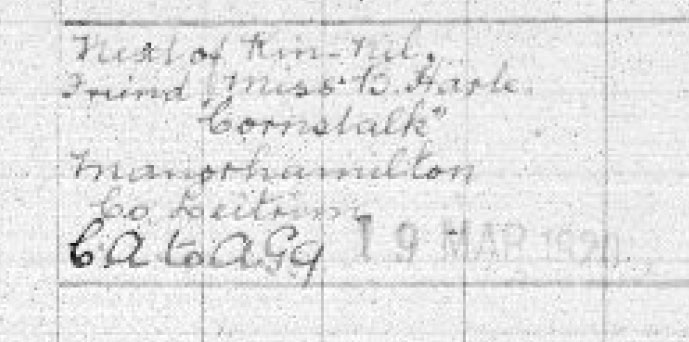 Next of Kin - Nil.
Friend Miss B. Harte.
"Cornstalk"
Manorhamilton
Co. Leitrim
C.A to A.G.9 19 MAR 1920